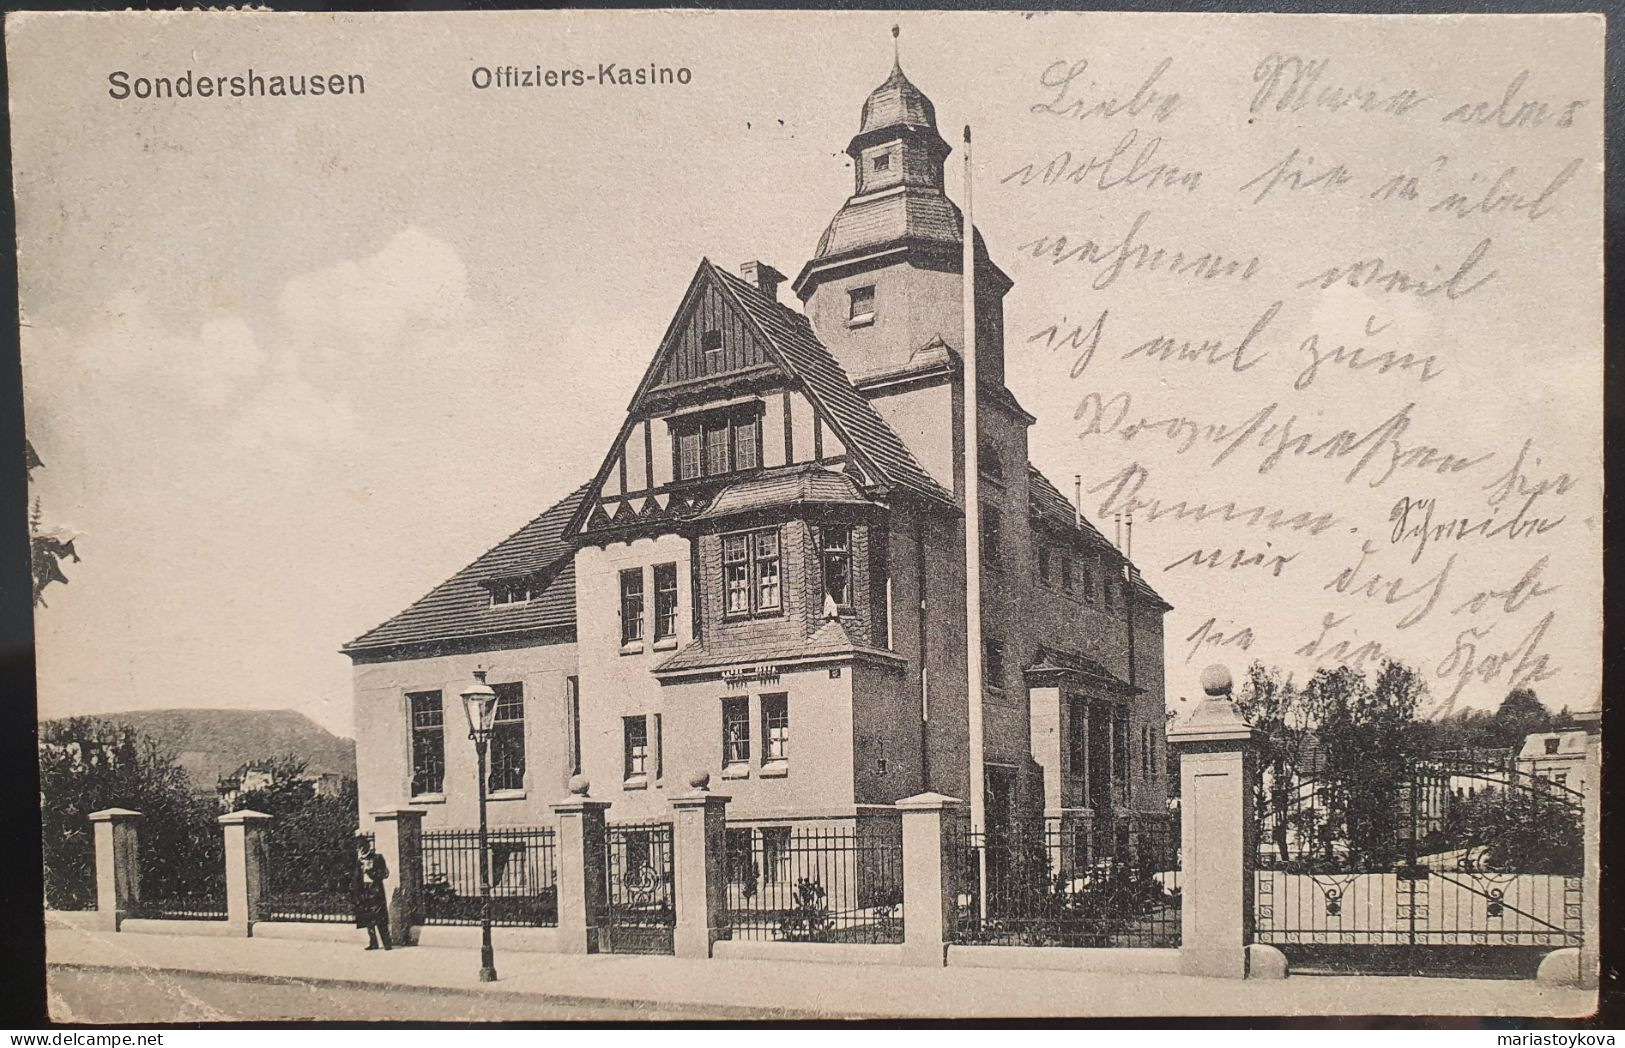 Sondershausen
Offiziers-Kasino
Liebe Marie
wollen sie übel
nehmen weil
ich mal zum
hier
kommen. Schreibe
mir doch ob
sie die
delcampe.net
mariastoykova